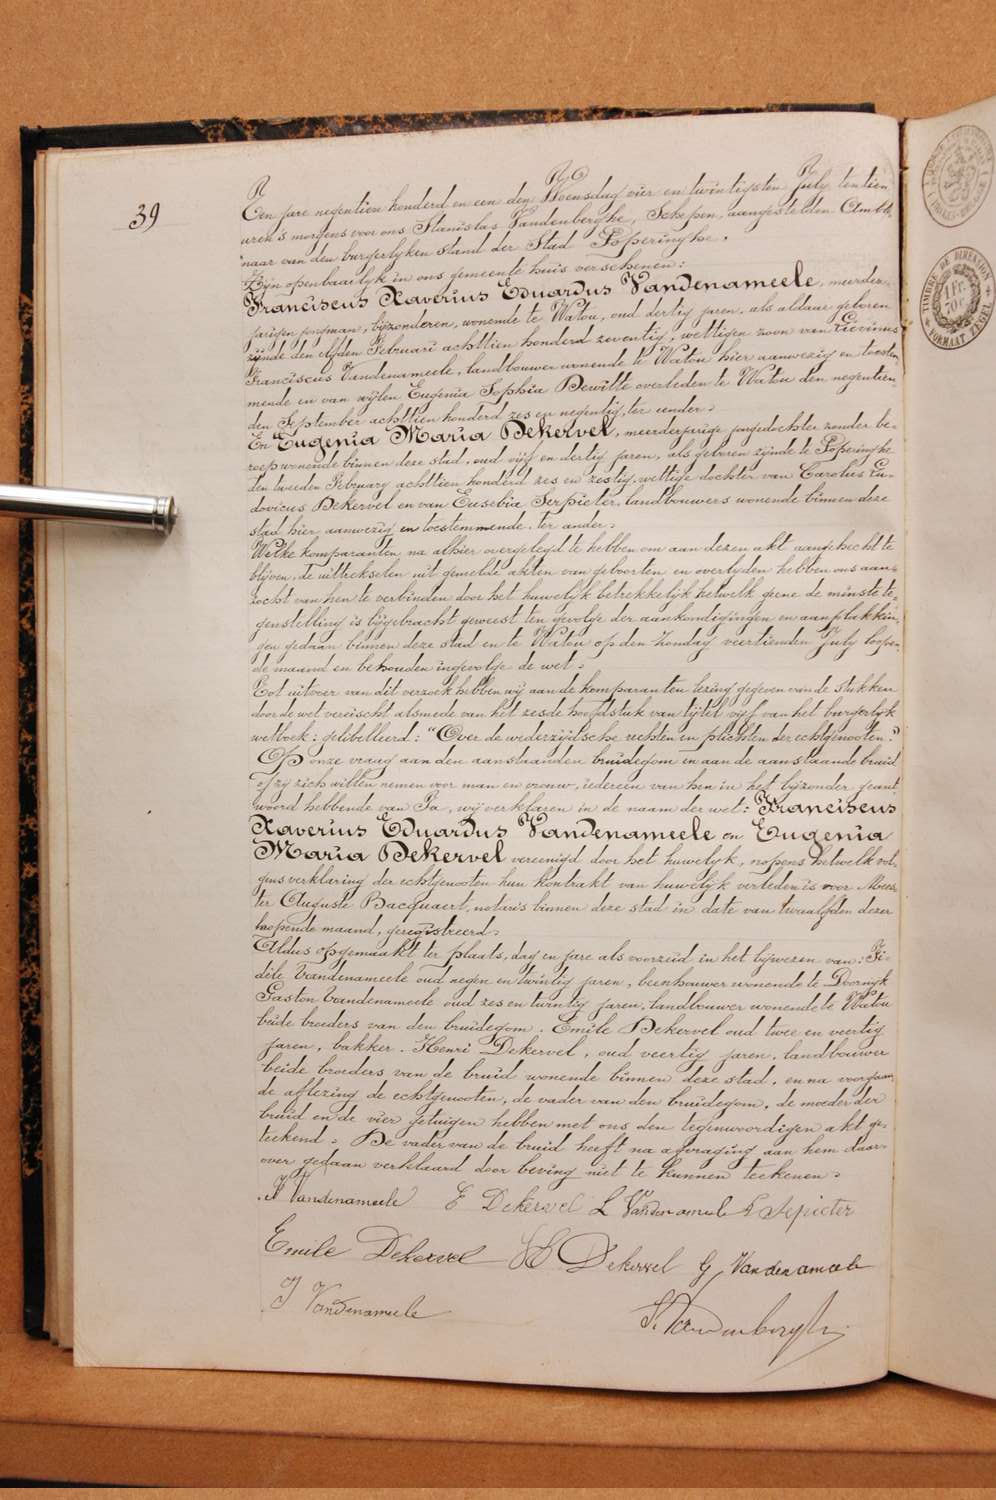 39
Een jare negentien honderd en een den Woensdag vier en twintigsten July ten tien
uren 's morgens voor ons Stanislas Vandenberghe, Schepen, aangestelden Ambte-
naar van den burgerlyken stand der Stad Poperinghe,
Zyn openbaarlyk in ons gemeente huis verschenen:
Franciscus Xaverius Eduardus Vandenameele, meerder-
jarigen jongman, byzonderen, wonende te Watou, oud dertig jaren, als aldaar geboren
zynde den elfden Februari achttien honderd zeventig, wettigen zoon van Lievinus
Franciscus Vandenameele, landbouwer wonende te Watou hier aanwezig en toestem-
mende en van wylen Eugenia Sophia Dewitte overleden te Watou den negentien-
den September achttien honderd zes en negentig, ter eender.
En Eugenia Maria Dekervel, meerderjarige jongedochter zonder be-
roep wonende binnen deze stad, oud vyf en dertig jaren, als geboren zynde te Poperinghe
den tweeden February achttien honderd zes en zestig, wettige dochter van Carolus Lu-
dovicus Dekervel en van Eusebia Serpieter, landbouwers wonende binnen deze
stad hier aanwezig en toestemmende, ter ander.
Welke komparanten na alhier overgelegd te hebben om aan dezen akt aangehecht te
blyven, de uittrekselen uit gemelde akten van geboorten en overlyden hebben ons aan-
zocht van hen te verbinden door het huwelyk betrekkelyk hetwelk geene de minste te-
genstelling is bygebracht geweest ten gevolge der aankondigingen en aanplakkin-
gen gedaan binnen deze stad en te Watou op den Zondag veertienden July loopen-
de maand en behouden ingevolge de wet.
Tot uitvoer van dit verzoek hebben wy aan de komparanten lezing gegeven van de stukken
door de wet vereischt alsmede van het zesde hoofdstuk van tytel vyf van het burgerlyk
wetboek: gelibelleerd: "Over de wederzydsche rechten en plichten der echtgenooten."
Op onze vraag aan den aanstaanden bruidegom en aan de aanstaande bruid
of zy zich willen nemen voor man en vrouw, iedereen van hen in het byzonder geant-
woord hebbende van Ja, wy verklaren in de naam der wet: Franciscus
Xaverius Eduardus Vandenameele en Eugenia
Maria Dekervel vereenigd door het huwelyk, nopens hetwelk vol-
gens verklaring der echtgenooten hun kontrakt van huwelyk verleden is voor Mees-
ter Auguste Bacquaert, notaris binnen deze stad in date van twaalfden dezer
loopende maand, geregistreerd.
Aldus opgemaakt ter plaats, dag en jare als voorzeid in het bywezen van: Fi-
dèle Vandenameele oud negen en twintig jaren, beenhouwer wonende te Doornyk
Gaston Vandenameele oud zes en twintig jaren, landbouwer wonende te Watou
beide broeders van den bruidegom. Emile Dekervel oud twee en veertig
jaren, bakker. Henri Dekervel, oud veertig jaren, landbouwer
beide broeders van de bruid wonende binnen deze stad, en na voorgaan-
de aflezing de echtgenooten, de vader van den bruidegom, de moeder der
bruid en de vier getuigen hebben met ons den tegenwoordigen akt ge-
teekend. De vader van de bruid heeft na afvraging aan hem daar-
over gedaan verklaard door beving niet te kunnen teekenen.
Vandenameele E Dekervel L Vandenameele E Sepieter
Emile Dekervel H Dekervel G Vandenameele
F Vandenameele S. Vandenberghe
TIMBRE DE DIMENSION
1 Fr.
FORMAAT ZEGEL